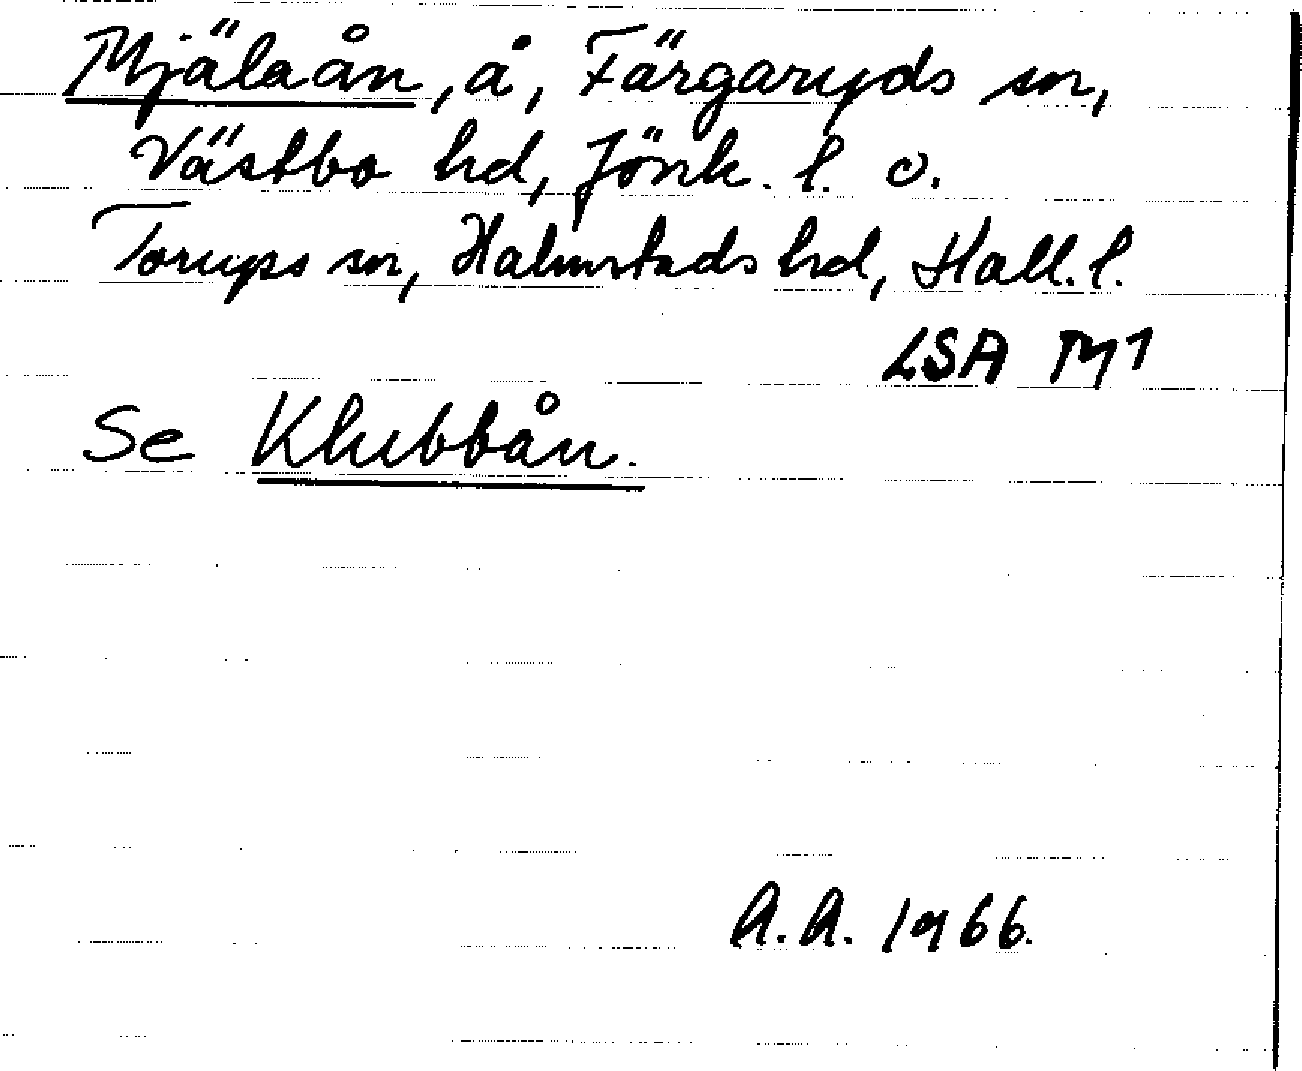 Mjälaån, å, Färgaryds sn,
Västbo hd, Jönk. l. o.
Torups sn, Halmstads hd, Hall. l.
LSA M1
Se Klubbån.
A.A. 1966.